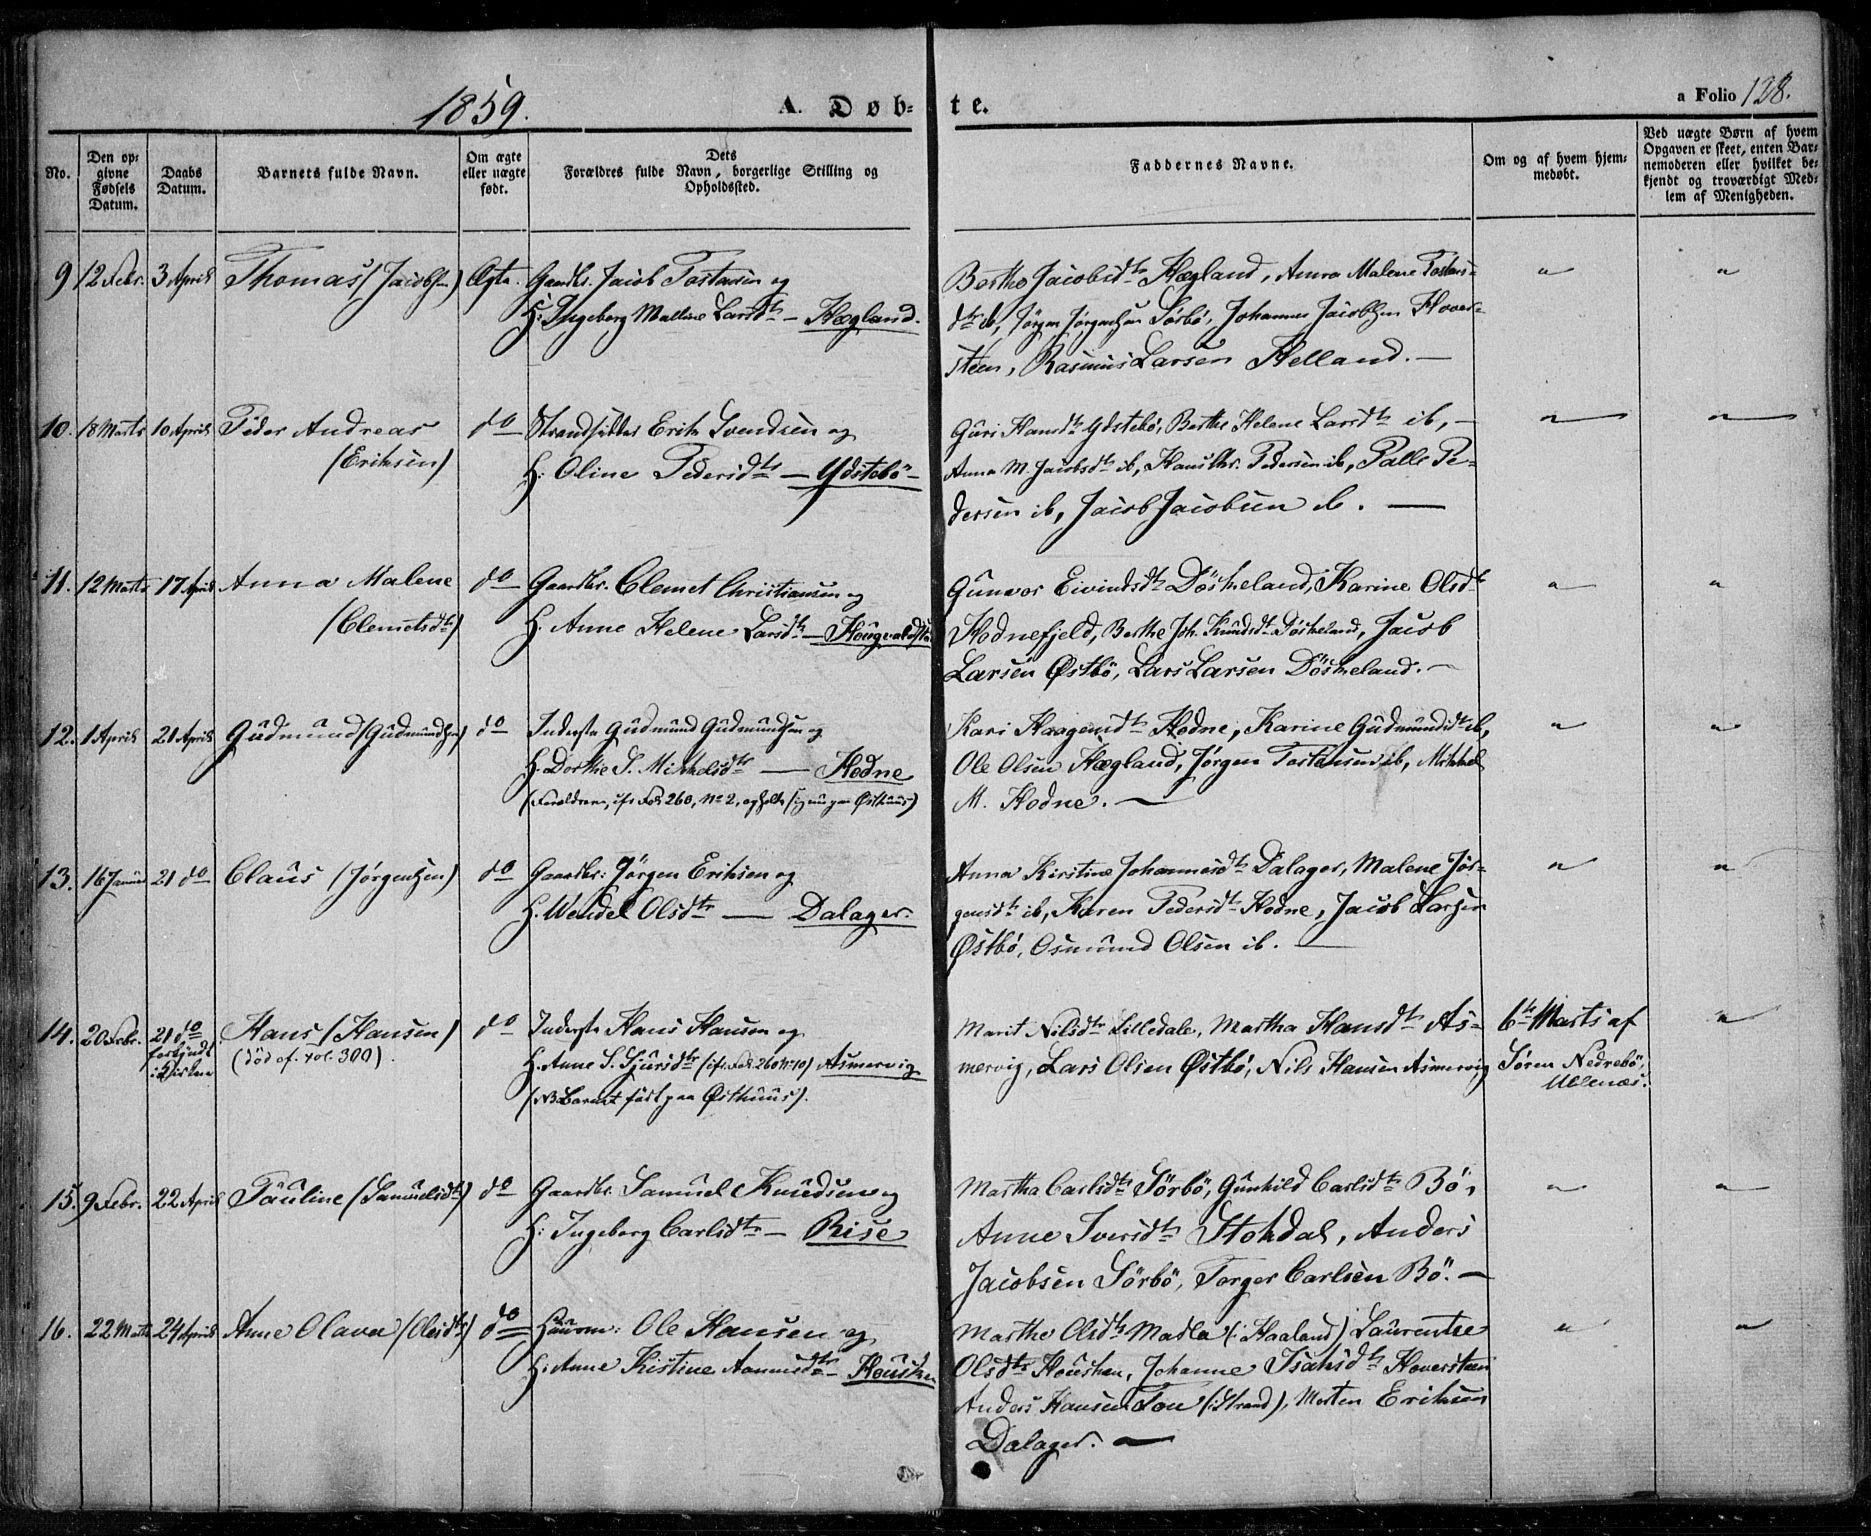 1859.
A. Døb-
te.
a Folio 128.
No.
Den op-
givne
Fødsels
Datum.
Daabs
Datum.
Barnets fulde Navn.
Om ægte
eller uægte
født.
Dets
Forældres fulde Navn, borgerlige Stilling og
Opholdssted.
Faddernes Navne.
Om og af hvem hjem-
medøbt.
Ved uægte Børn af hvem
Opgaven er skeet, enten Bar-
nemoderen eller hvilket be-
kjendt og troværdigt Med-
lem af Menigheden.
9 12 Febr. 3 April Thomas (Jacobsen) Ægte. Gaardbr. Jacob Tostensen og
H: Ingeborg Malline Larsdtr – Hægland.
Berthe Jacobsdtr Hægland, Anna Malene Tostens-
dtr ib, Jørgen Jørgensen Sörbö, Johannes Jacobsen Hover-
steen, Rasmus Larsen Helland. —
10. 18 Marts 10 April Peder Andreas
(Eriksen)
do Strandsidder Erik Svendsen og
H: Oline Pedersdtr – Ydstebö –
Guri Hansdtr Ydstebö, Berthe Helene Larsdtr ib, –
Anna M. Jacobsdtr ib, Hans Chr. Pedersen ib, Palle Pe-
dersen ib, Jacob Jacobsen ib. —
11. 12 Marts 17 April Anna Malene
(Clemetsdtr)
do Gaardbr. Clemet Christiansen og
H. Anne Helene Larsdtr –
Gunvor Eivindsdtr Döskeland, Karine Olsdtr
Hodnefjeld, Berthe Joh. Knudsdtr Döskeland, Jacob
Larsen Østbö, Lars Larsen Döskeland. –
12. 1 April 21 April Gudmund (Gudmundsen) do Inderste Gudmund Gudmundsen og
H. Dorthe S. Mikkelsdtr — Hodne
(Forældrene, cfr. Fol. 260, No 2, opholde sig nu paa Østhuus)
Kari Haagensdtr Hodne, Karine Gudmundsdtr ib,
Ole Olsen Hægland, Jørgen Tostensen ib, Mikkel
M. Hodne. —
13. 16 Januar 21 do Claus (Jørgensen) do Gaardbr: Jörgen Eriksen og
H. Wendel Olsdtr — Dalager.
Anna Kirstine Johannesdtr Dalager, Malene Jör-
gensdtr ib, Karen Pedersdtr Hodne, Jacob Larsen
Østbö, Osmund Olsen ib. —
14. 20 Febr. 21 do
forkyndt
i Kirken
Hans (Hansen)
(död cf. Fol. 300).
do Inderste Hans Hansen og
H. Anne S. Sjursdtr (cfr. Fol. 260 N. 10) Asmervig
(NB Barnet födt paa Østhuus).
Marit Nilsdtr Lilledale, Martha Hansdtr As-
mervig, Lars Olsen Østbö, Nils Hansen Asmervig
6te Marts af
Sören Nedrebö,
15. 9 Febr. 22 April Pauline (Samuelsdtr) do Gaardbr. Samuel Knudsen og
H: Ingeborg Carlsdtr – Rise
Martha Carlsdtr Sörbö, Gunhild Carlsdtr Bö,
Anne Iversdtr Stokdal, Anders
Jacobsen Sörbö, Torger Carlsen Bö. —
16. 22 Marts 24 April Anne Olava (Olesdtr) do Huusm: Ole Hansen og
H: Anne Kistine Aanensdtr – Housken
Marthe Olsdtr Madla (: Haaland) Laurentse
Olsdtr Housken, Johanne Isaksdtr Hoversteen
Anders Hansen Tou (: Strand), Morten Eriksen
Dalager. —